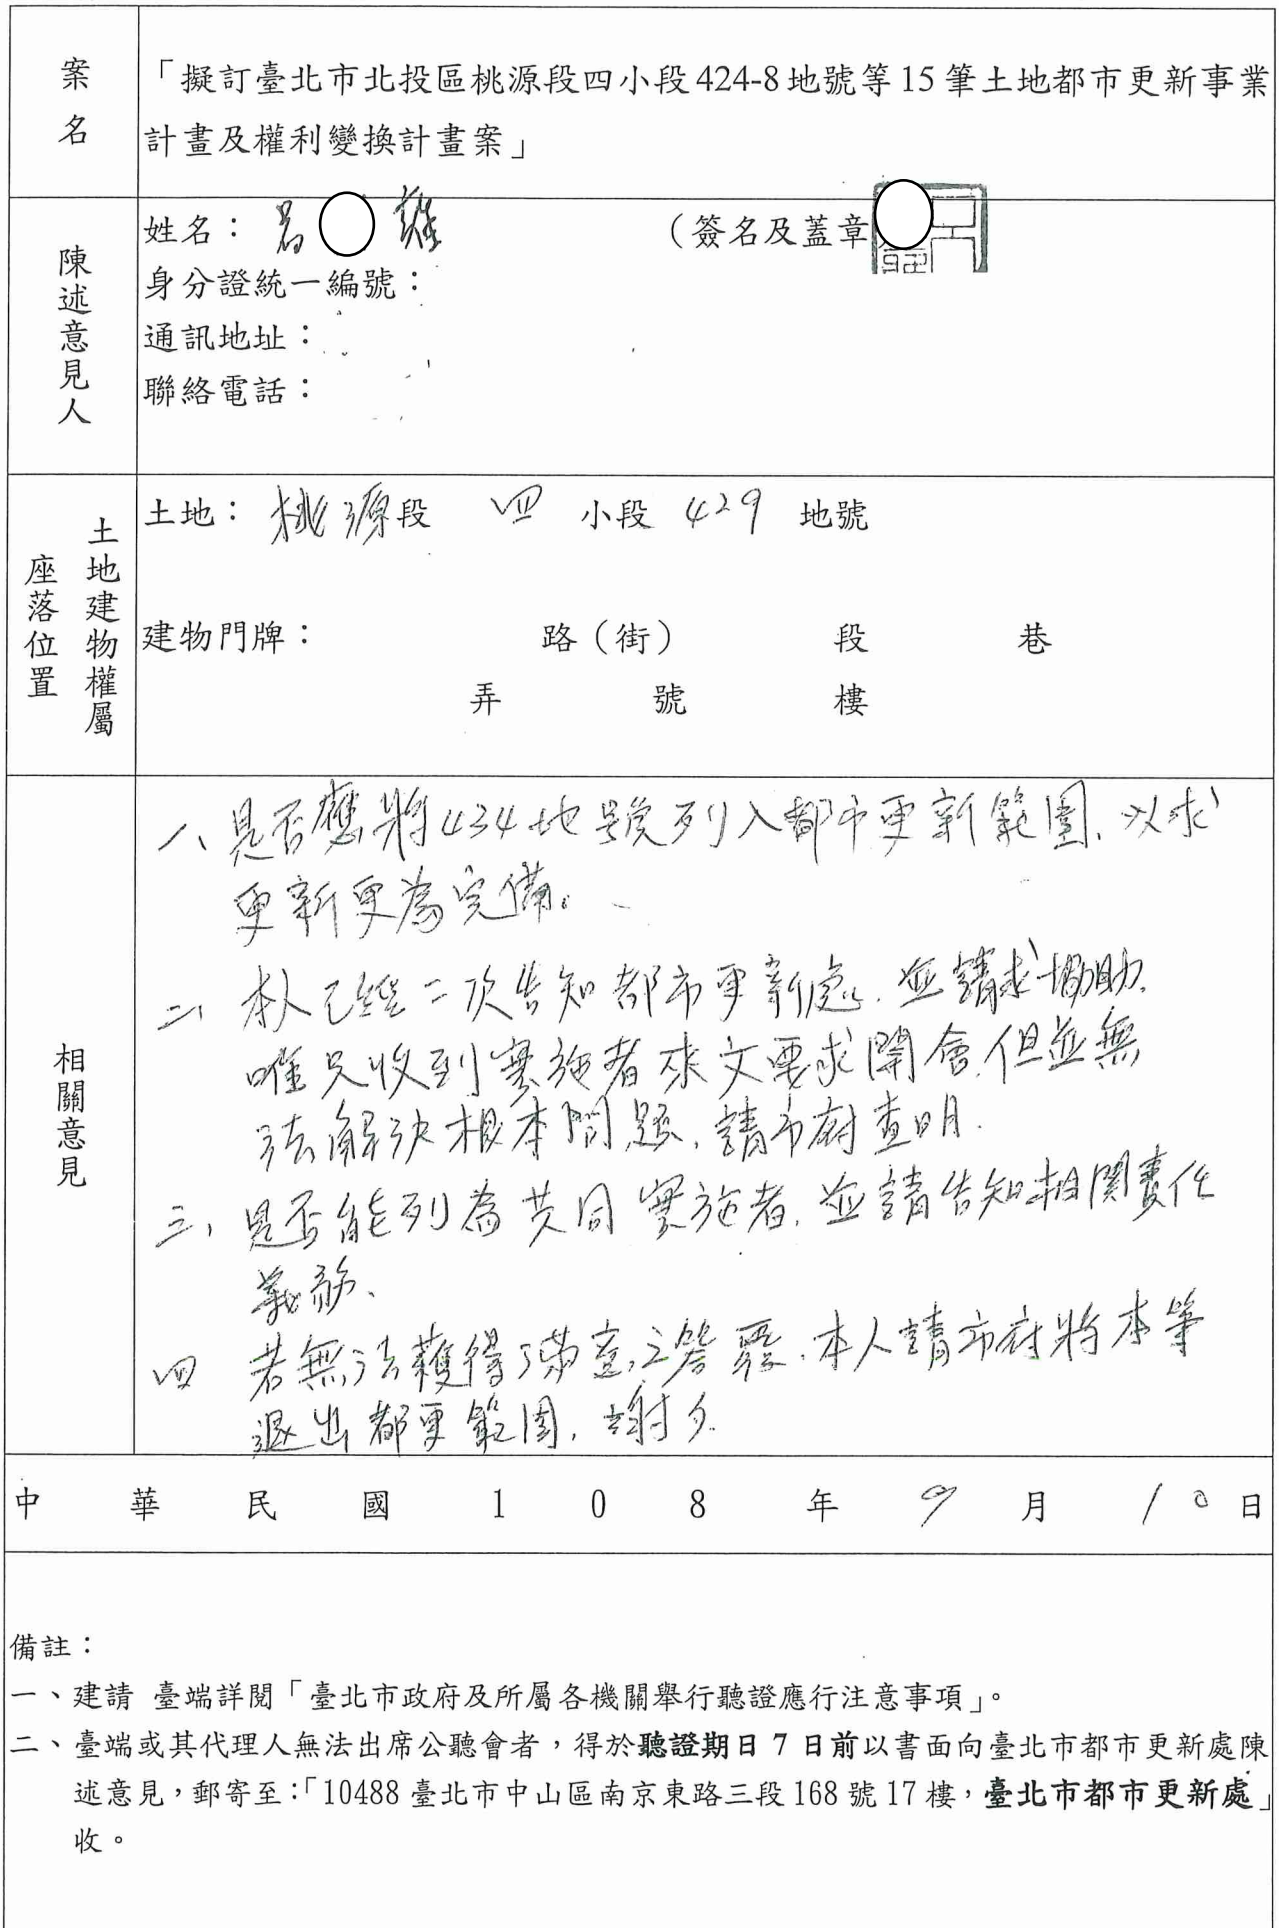 案名
「擬訂臺北市北投區桃源段四小段424-8地號等15筆土地都市更新事業
計畫及權利變換計畫案」
陳述意見人
姓名：呂 雄 （簽名及蓋章）
身分證統一編號：
通訊地址：
聯絡電話：
土地建物權屬
座落位置
土地：桃源段 四 小段 429 地號
建物門牌： 路（街） 段 巷
弄 號 樓
相關意見
一、是否應將434地號列入都市更新範圍、以求
更新更為完備。
二、本人已經二次告知都市更新處、並請求協助、
唯只收到實施者來文要求開會、但並無
法解決根本問題、請市府查明.
三、是否能列為共同實施者、並請告知相関責任
義務、
四 若無法獲得滿意之答覆、本人請市府將本筆
退出都更範圍、謝々.
中華民國108年9月10日
備註：
一、建請 臺端詳閱「臺北市政府及所屬各機關舉行聽證應行注意事項」。
二、臺端或其代理人無法出席公聽會者，得於聽證期日7日前以書面向臺北市都市更新處陳
述意見，郵寄至：「10488臺北市中山區南京東路三段168號17樓，臺北市都市更新處」
收。